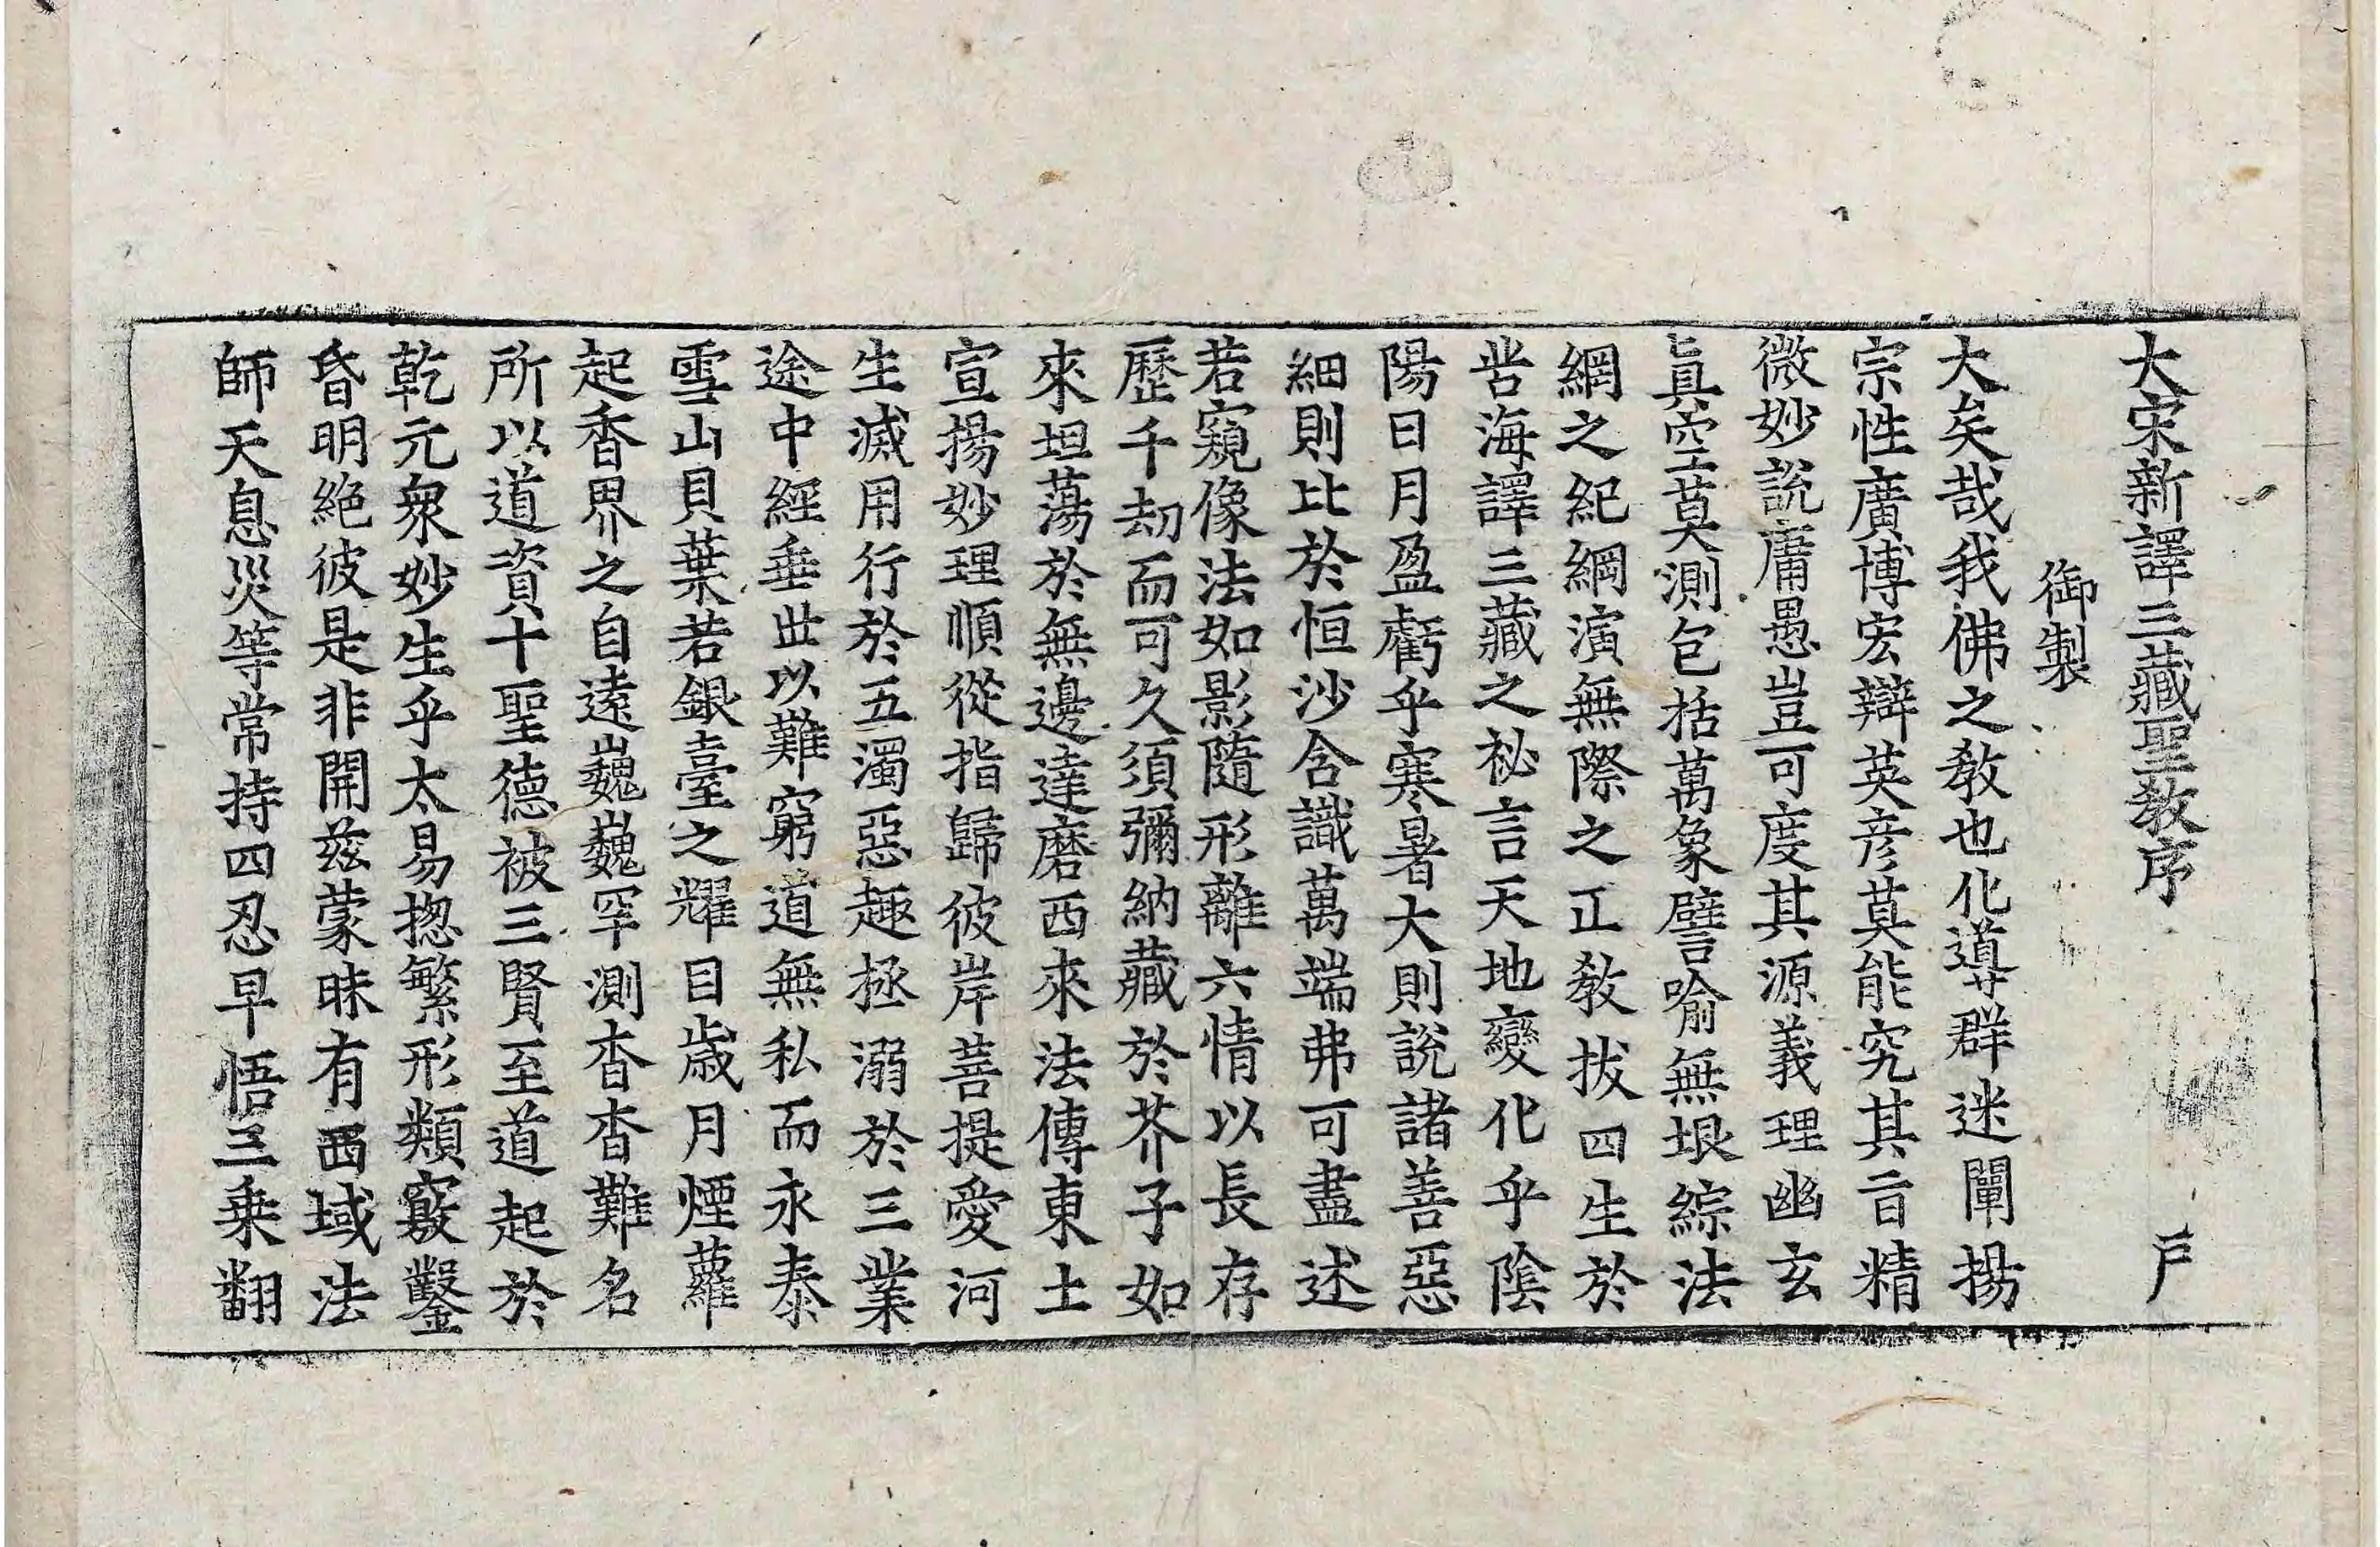 大宋新譯三藏聖教序 戸
御製
大矣哉我佛之教也化導群迷闡揚
宗性廣博宏辯英彦莫能究其旨精
微妙說庸愚豈可度其源義理幽玄
眞空莫測包括萬象譬喻無垠綜法
網之紀綱演無際之正教拔四生於
苦海譯三藏之祕言天地變化乎陰
陽日月盈虧乎寒暑大則說諸善惡
細則比於恒沙含識萬端弗可盡述
若窺像法如影隨形離六情以長存
歷千劫而可久須彌納藏於芥子如
來坦蕩於無邊達磨西來法傳東土
宣揚妙理順從指歸彼岸菩提愛河
生滅用行於五濁惡趣拯溺於三業
途中經垂世以難窮道無私而永泰
雪山貝葉若銀臺之耀目歲月煙蘿
起香界之自遠巍巍罕測杳杳難名
所以道資十聖德被三賢至道起於
乾元衆妙生乎太易揔繁形類竅鑿
昏明絕彼是非開茲蒙昧有西域法
師天息災等常持四忍早悟三乗翻